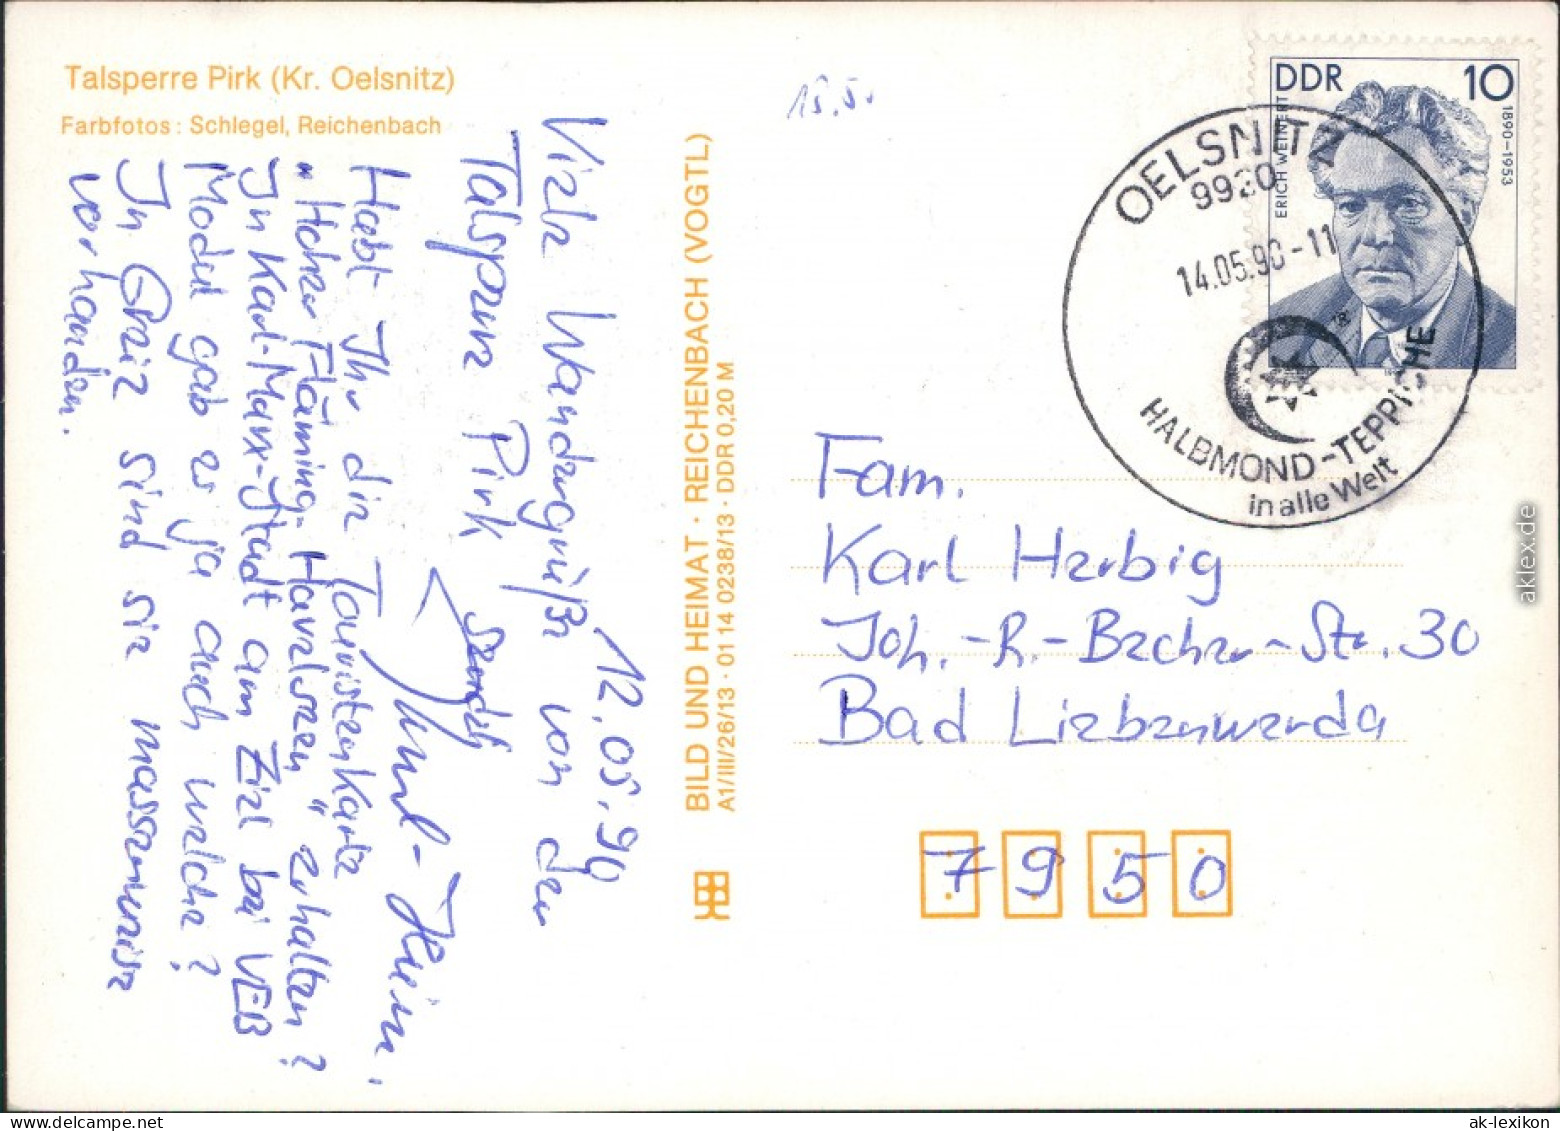 Talsperre Pirk (Kr. Oelsnitz)
Farbfotos: Schlegel, Reichenbach
12.05.90
Viele Wandergrüße von der
Talsperre Pirk
sendet
Habt Ihr die Touristenkarte
"Hoher Fläming-Havelseen" erhalten?
In Karl-Marx-Stadt am Ziel bei VEB
Modul gab es ja auch welche?
In Greiz sind sie massenweise
vorhanden.
BILD UND HEIMAT · REICHENBACH (VOGTL)
A1/III/26/13 · 01 14 0238/13 · DDR 0,20 M
15.5.
DDR 10
ERICH WEINERT
1890-1953
OELSNITZ
9920
14.05.90-11
HALBMOND-TEPPICHE
in alle Welt
Fam.
Karl Herbig
Joh.-R.-Becher-Str. 30
Bad Liebenwerda
7950
aklex.de
ak-lexikon